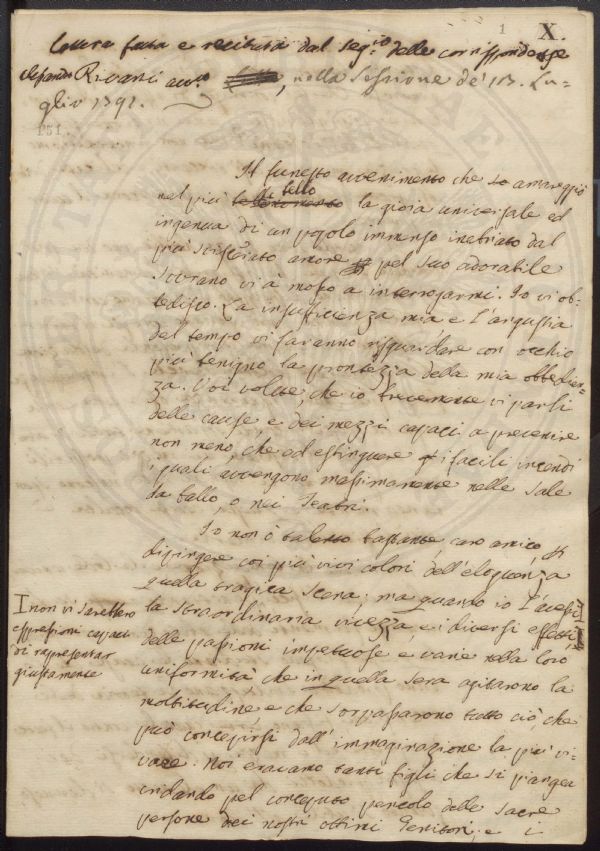 1 X.
Lettera fatta e recitata dal Seg.rio delle corrispondenze
Rivani avv.o, nella Sessione de' 13. Lu-
glio 1791.
151.
Il funesto avvenimento che so amareggiò
nel più bello la gioia universale ed
ingenua di un popolo immenso inebriato dal
più sviscerato amore pel suo adorabile
sovrano vi à mosso a interrogarmi. Io vi ob-
bedisco. La insufficienza mia e l'angustia
del tempo vi faranno risguardare con occhio
più benigno la prontezza della mia obbedien-
za. Voi volete, che io brevemente vi parli
delle cause e dei mezzi capaci a prevenire
non meno, che ed estinguere i facili incendi
i quali avvengono massimamente nelle Sale
da ballo, o nei Teatri.
Io non ò talento bastante caro amico
dipingere coi più vivi colori dell'eloquenza
quella tragica scena; ma quando io l'avessi
I non vi sarebbero
espressioni capaci
di rappresentar
giustamente
la straordinaria vivezza e i diversi effetti
delle passioni impetuose e varie nella loro
uniformità, che in quella sera agitarono la
moltitudine e che sorpassarono tutto ciò, che
può concepirsi dall'immaginazione la più vi-
vace. Noi eravamo tanti figli che si piangea
gridando pel concepito pericolo delle sacre
persone dei nostri ottimi Genitori; e i